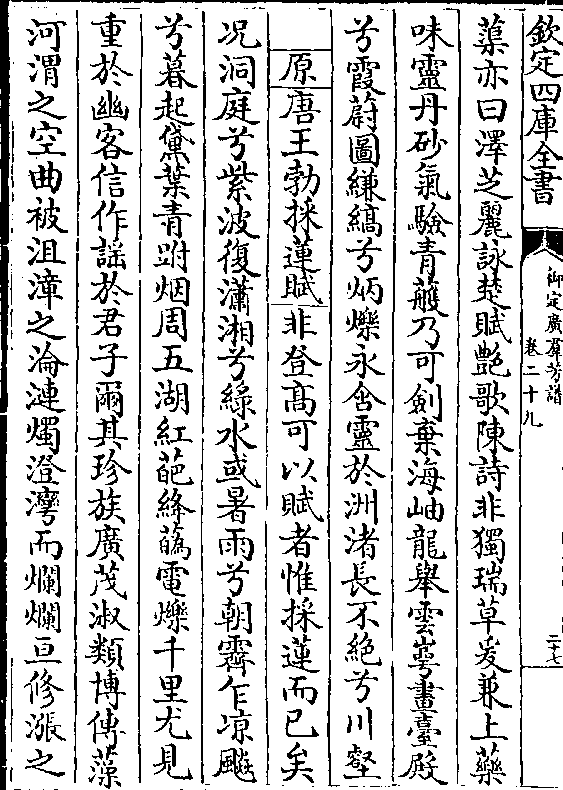 欽定四庫全書
御定廣羣芳譜
卷二十九
二十七
蕖亦曰澤芝麗詠楚賦艷歌陳詩非獨瑞草爰兼上藥
味靈丹砂氣驗青䕶乃可劍棄海岫龍舉雲嶹畫臺殿
兮霞蔚圖縑縞兮炳爍永含靈於洲渚長不絶兮川壑
原唐王勃採蓮賦非登髙可以賦者惟採蓮而已矣
况洞庭兮紫波復瀟湘兮綠水或暑雨兮朝霽乍凉飈
兮暮起黛葉青跗烟周五湖紅葩絳蘤電爍千里尤見
重於幽客信作謡於君子爾其珍族廣茂淑類博傳藻
河渭之空曲被沮漳之淪漣燭澄灣而爛爛亘修漲之